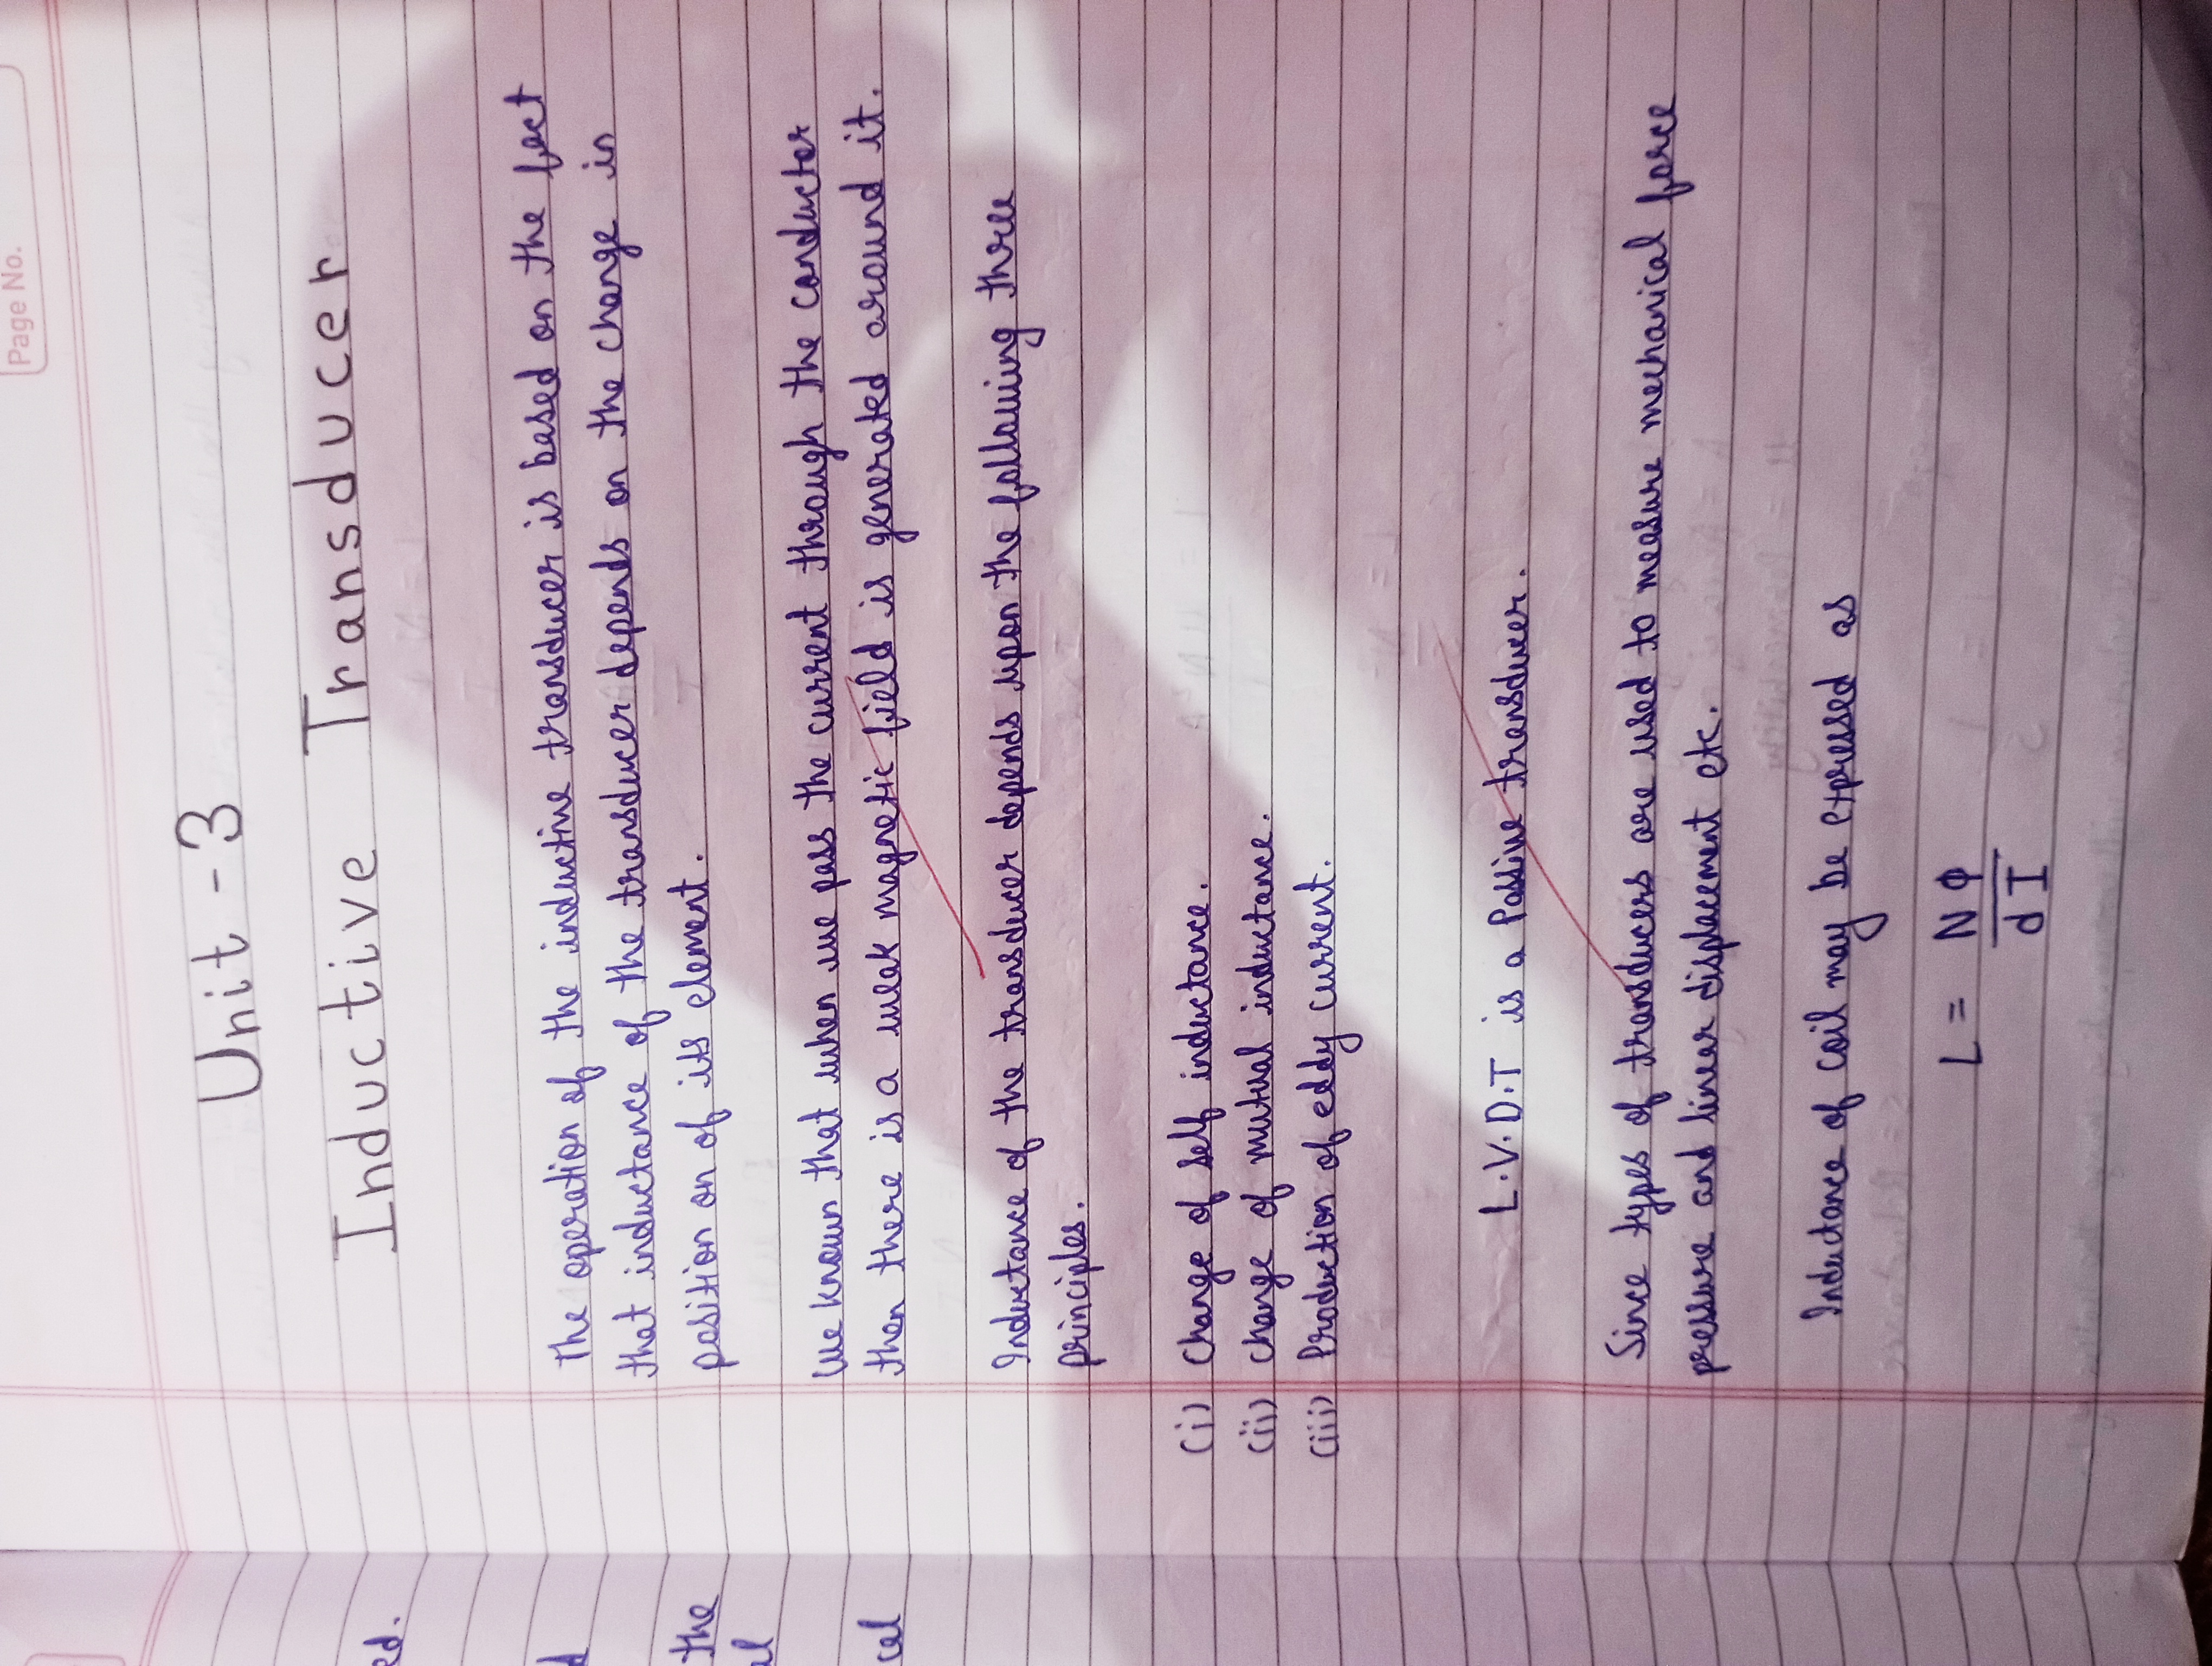 Page No.
Unit - 3
Inductive Transducer
The operation of the inductive transducer is based on the fact
that inductance of the transducer depends on the change in
position on of its element.
We known that when we pass the current through the conductor
then there is a weak magnetic field is generated around it.
Inductance of the transducer depends upon the following three
principles.
(i) Change of self inductance.
(ii) Change of mutual inductance.
(iii) Production of eddy current.
L.V.D.T is a Passive transducer.
Since types of transducers are used to measure mechanical force
pressure and linear displacement etc.
Inductance of coil may be expressed as
L = NΦ
dI
ed.
d
the
al
cal